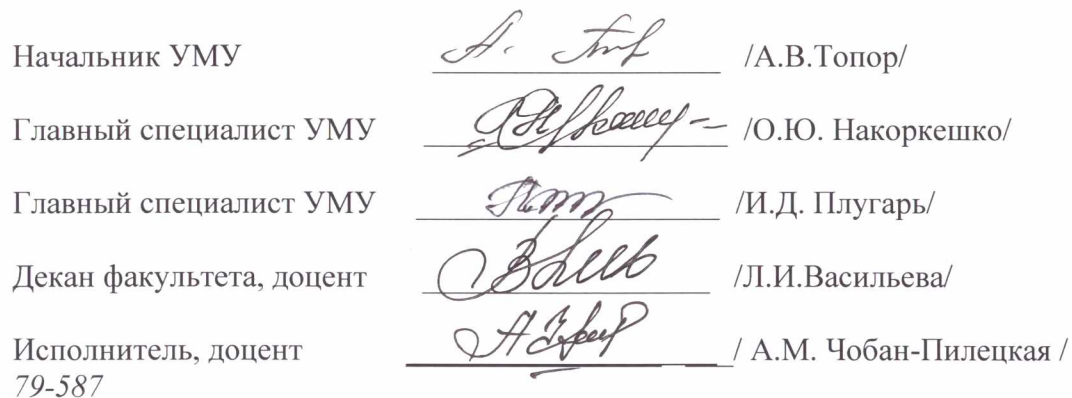 Начальник УМУ /А.В.Топор/
Главный специалист УМУ /О.Ю. Накоркешко/
Главный специалист УМУ /И.Д. Плугарь/
Декан факультета, доцент /Л.И.Васильева/
Исполнитель, доцент / А.М. Чобан-Пилецкая /
79-587